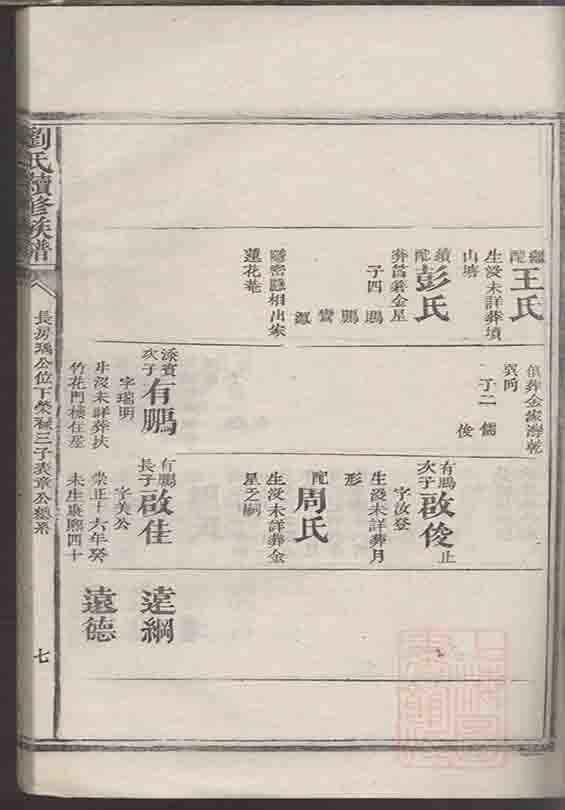 劉氏續修族譜
長房瑀公位下榮祿三子表章公總系
七
配王氏
生沒未詳葬墳
山塘
續配彭氏
葬莒箕金星
子四 鵾
鵬
鸞
鳳
隱密廳相出家
蓮花菴
俱葬金家海乾
巽向
子二 儒
俊
添賓次子有鵬
字瑞明
生沒未詳葬扶
竹花門樓住屋
有鵬次子啟俊止
字汝登
生沒未詳葬月
形
配周氏
生沒未詳葬金
星之嗣
有鵬長子啟佳
字美公
崇正十六年癸
未生康熙四十
達綱
遠德